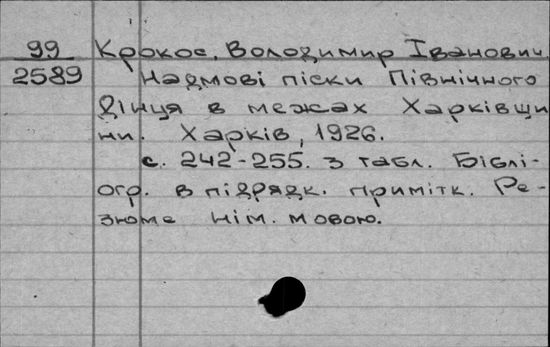 99 Крокос, Володимир Іванович
2589 Надмові піски Північного
Дінця в межах Харківщи
ни. Харків, 1926.
с. 242-255. з табл. Біблі-
огр. в підрядк. примітк. Ре-
зюме нім. мовою.